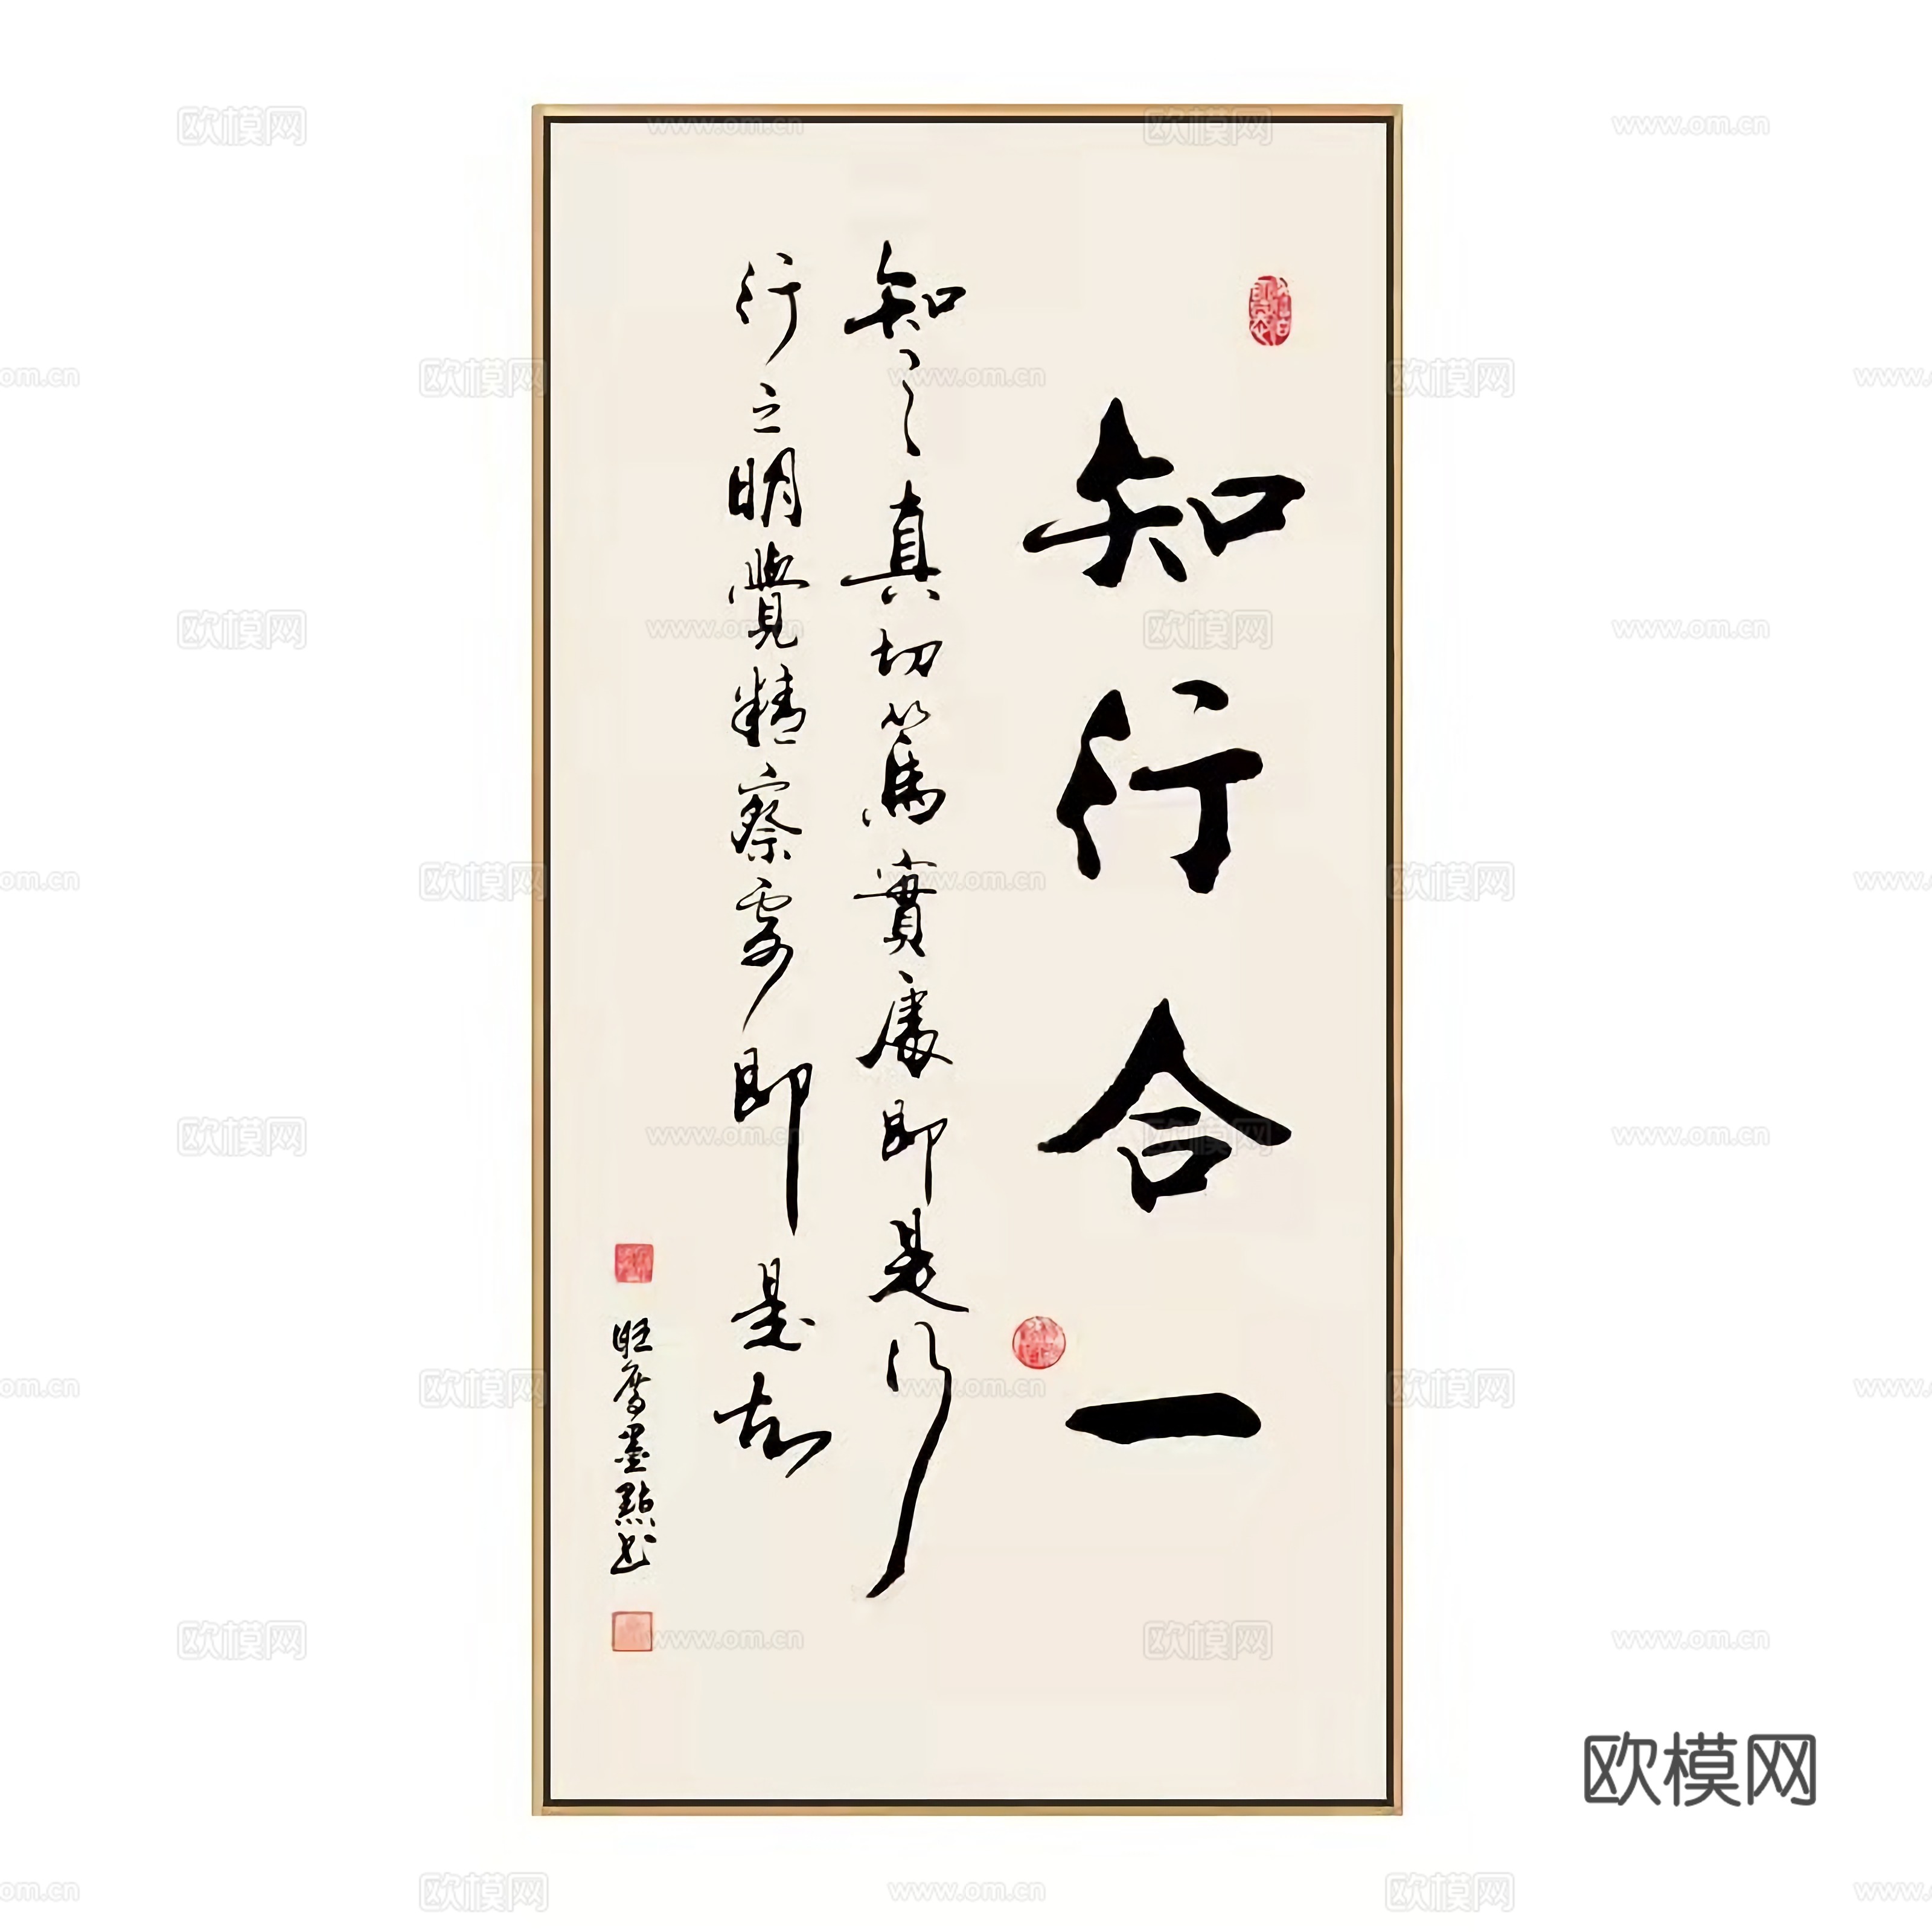 知行合一
知之真切篤實處即是行
行之明覺精察處即是知
旺墨點
欧模网
www.om.cn